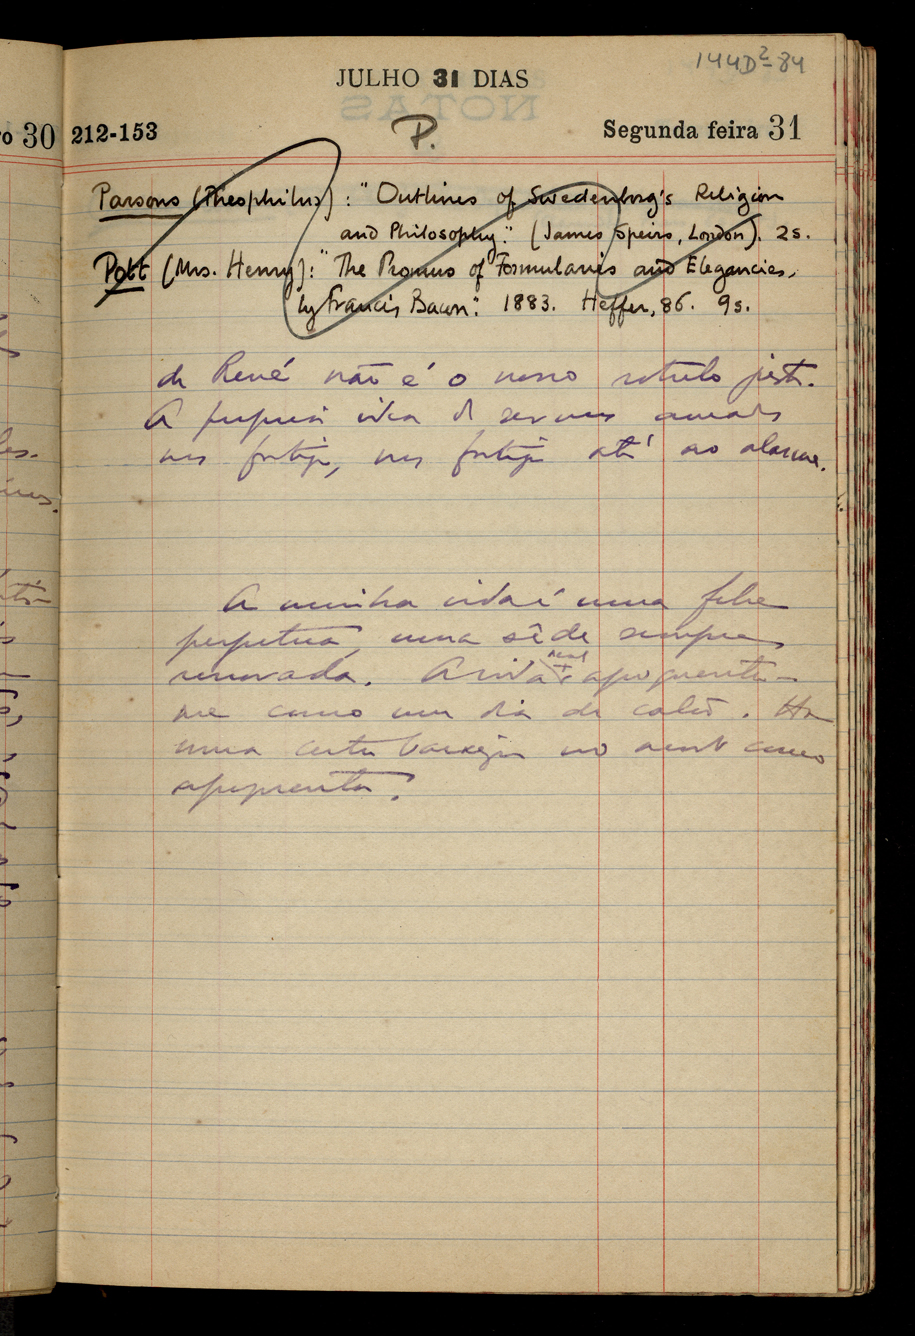 144D²-84
JULHO 31 DIAS
o 30 212-153 P. Segunda feira 31
Parsons (Theophilus): "Outlines of Swedenborg's Religion
and Philosophy." (James Speirs, London). 2s.
Pott (Mrs. Henry): "The Promus of Formularies and Elegancies,
by Francis Bacon." 1883. Heffer, 86. 9s.
de René não é o nosso rotulo
A propria idea de sermos amados
nos fatiga, nos fatiga até ao alarme.
A minha vida é uma febre
perpetua, uma sêde sempre
renovada. A vida real apoquenta-
me como um dia de calôr. Ha
uma certa baixeza no modo como
apoquenta.